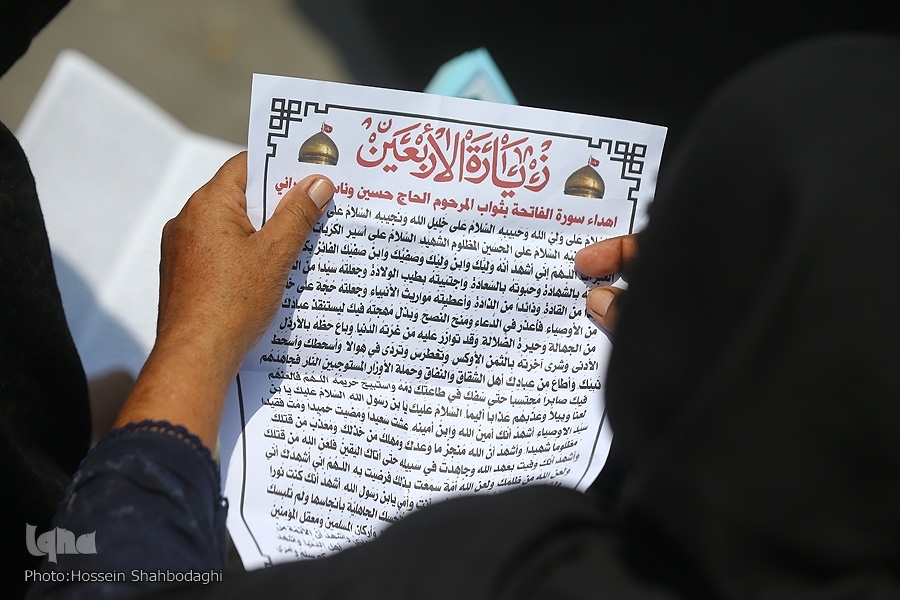 زيارة الأربعين
اهداء سورة الفاتحة بثواب المرحوم الحاج حسين
السلام على ولي الله وحبيبه السلام على خليل الله ونجيبه السلام على
السلام على الحسين المظلوم الشهيد السلام على أسير الكربات
اللهم إني أشهد أنه وليك وابن وليك وصفيك وابن صفيك الفائز
بالشهادة وحبوته بالسعادة واجتبيته بطيب الولادة وجعلته سيدا من
من القادة وذائدا من الذادة وأعطيته مواريث الأنبياء وجعلته حجة على
من الأوصياء فأعذر في الدعاء ومنح النصح وبذل مهجته فيك ليستنقذ عبادك
من الجهالة وحيرة الضلالة وقد توازر عليه من غرته الدنيا وباع حظه بالأرذل
الأدنى وشرى آخرته بالثمن الأوكس وتغطرس وتردى في هواه وأسخطك وأسخط
نبيك وأطاع من عبادك أهل الشقاق والنفاق وحملة الأوزار المستوجبين النار فجاهدهم
فيك صابرا محتسبا حتى سفك في طاعتك دمه واستبيح حريمه اللهم فالعنهم
لعنا وبيلا وعذبهم عذابا أليما السلام عليك يا بن رسول الله السلام عليك يا بن
سيد الأوصياء أشهد أنك أمين الله وابن أمينه عشت سعيدا ومضيت حميدا ومت فقيدا
مظلوما شهيدا وأشهد أن الله منجز ما وعدك ومهلك من خذلك ومعذب من قتلك
وأشهد أنك وفيت بعهد الله وجاهدت في سبيله حتى أتاك اليقين فلعن الله من قتلك
ولعن الله من ظلمك ولعن الله أمة سمعت بذلك فرضيت به اللهم إني أشهدك أني
أنت وأمي يا بن رسول الله أشهد أنك كنت نورا
الجاهلية بأنجاسها ولم تلبسك
وأركان المسلمين ومعقل المؤمنين
iqna
Photo:Hossein Shahbodaghi